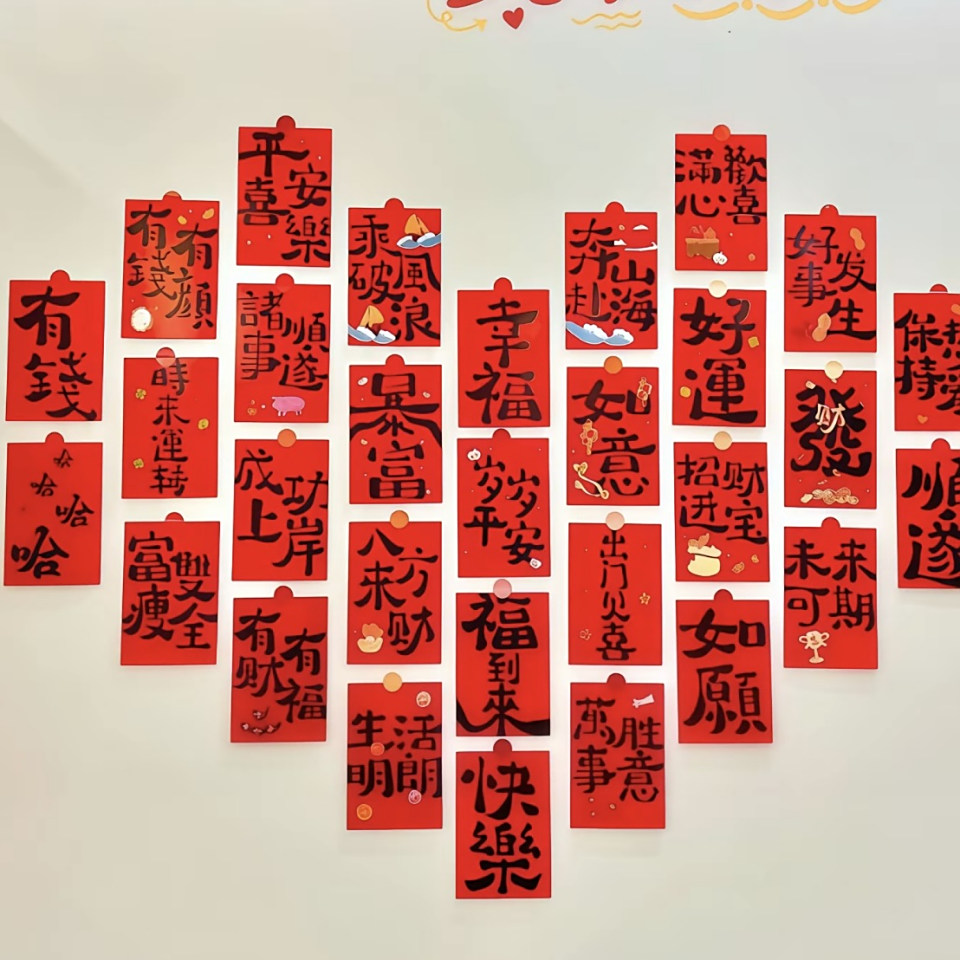 有錢
哈哈哈哈
有錢有顏
時来運轉
富瘦雙全
平安喜樂
諸事順遂
成功上岸
有财有福
乘風破浪
暴富
八方来财
生活明朗
幸福
岁岁平安
福到來
快樂
奔赴山海
如意
出门见喜
萬事胜意
滿心歡喜
好運
招财进宝
如願
好事发生
發财
未来可期
保持
順遂